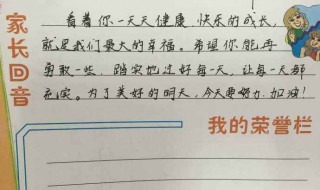 家长回音
看着你一天天健康、快乐的成长,
就是我们最大的幸福。希望你能再
勇敢一些,踏实地过好每一天,让每一天都
充实。为了美好的明天,今天要努力,加油!
我的荣誉栏